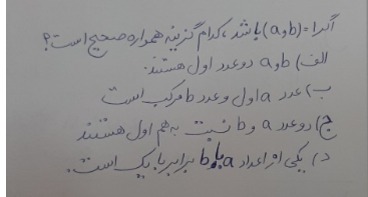 اگر ۱=(a,b) باشد، کدام گزینه همواره صحیح است؟
الف) a و b دو عدد اول هستند.
ب) عدد a اول و عدد b مرکب است
ج) دو عدد a و b نسبت به هم اول هستند
د) یکی از اعداد a یا b برابر با یک است.